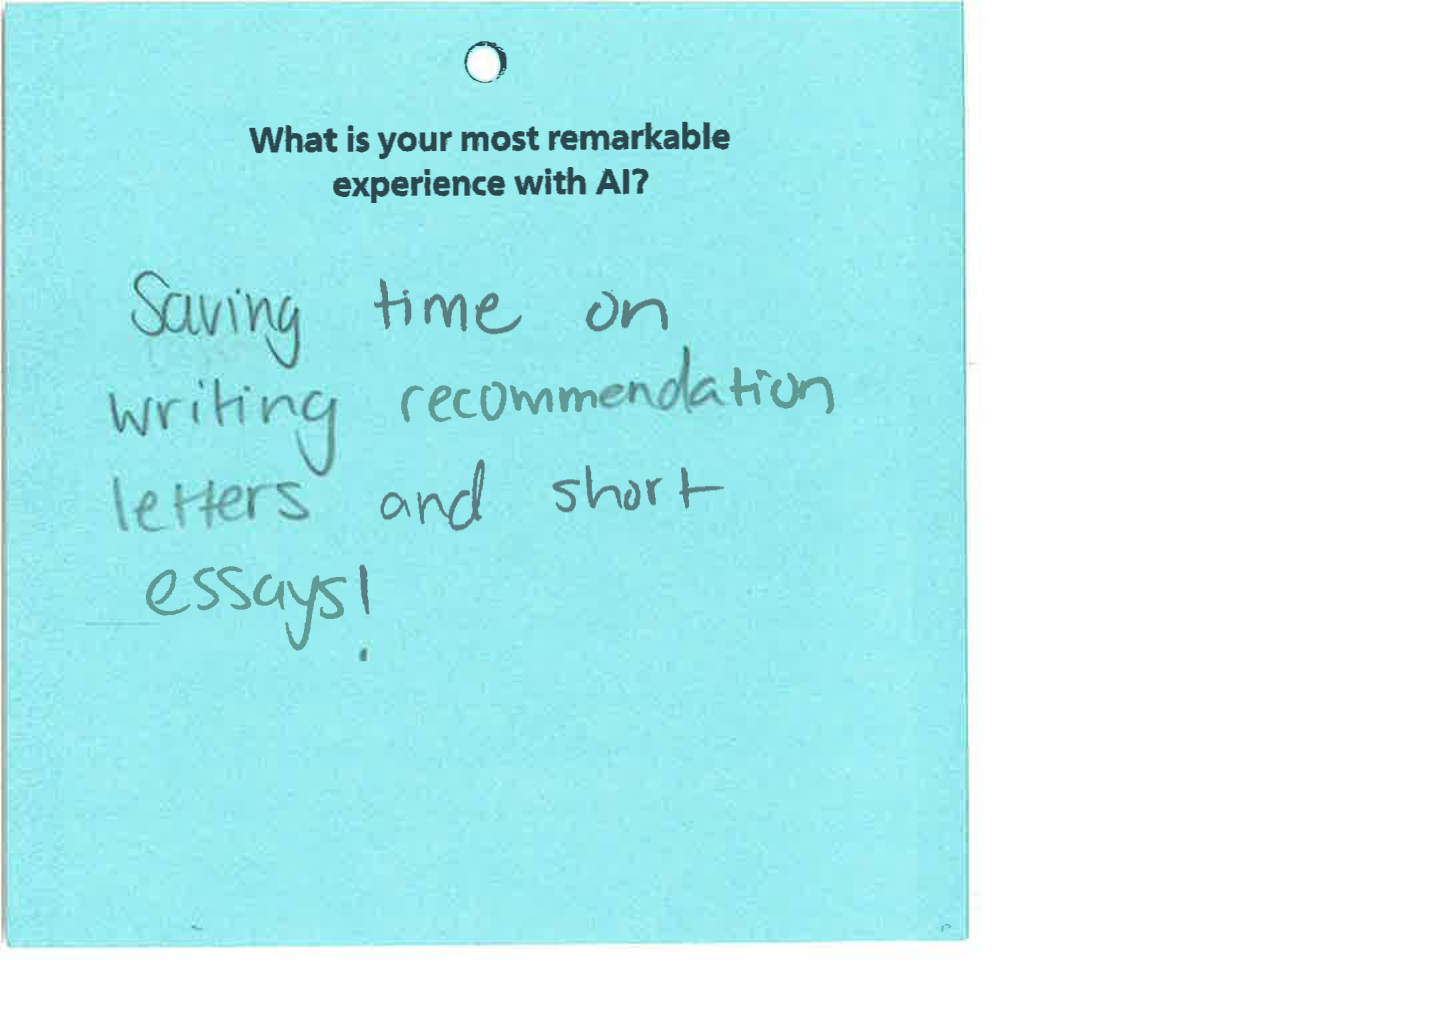 What is your most remarkable
experience with AI?
Saving time on
writing recommendation
letters and short
essays!